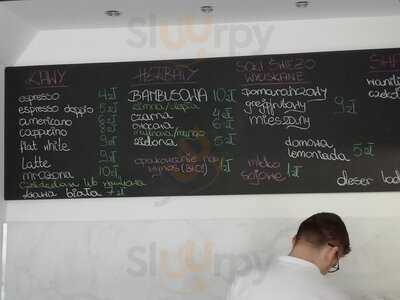 KAWY
espresso 4zł
espresso doppio 5zł
americano 6zł
cappuccino 8zł
flat white 9zł
Latte 9zł
mrożona 10zł
czekolada lub
kawa biała 7zł
HERBATY
BAMBUSOWA 10zł
zimna/ciepła
czarna 4zł
owocowa 6zł
/mango
zielona 5zł
opakowanie na
wynos (BIO!) 1zł
SOKI ŚWIEŻO
WYCISKANE
pomarańczowy
grejpfrutowy 9zł
mieszany
domowa
lemoniada 5zł
mleko
sojowe 1zł
SHA
wanili
czekol
deser lod
Sluurpy
Sluurpy
Sluurpy